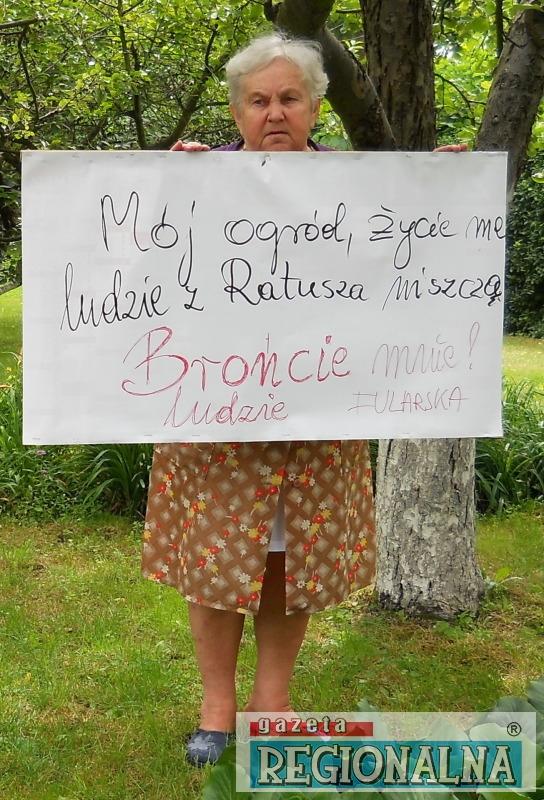 Mój ogród, życie me
ludzie z Ratusza niszczą
Brońcie mnie!
ludzie FULARSKA
gazeta
REGIONALNA ®